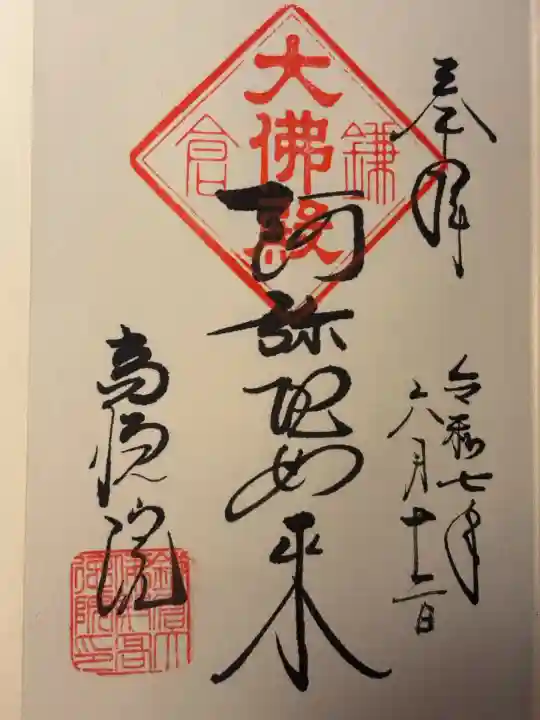 奉拝
令和七年
六月十二日
鎌倉
大佛殿
阿弥陀如来
高徳院